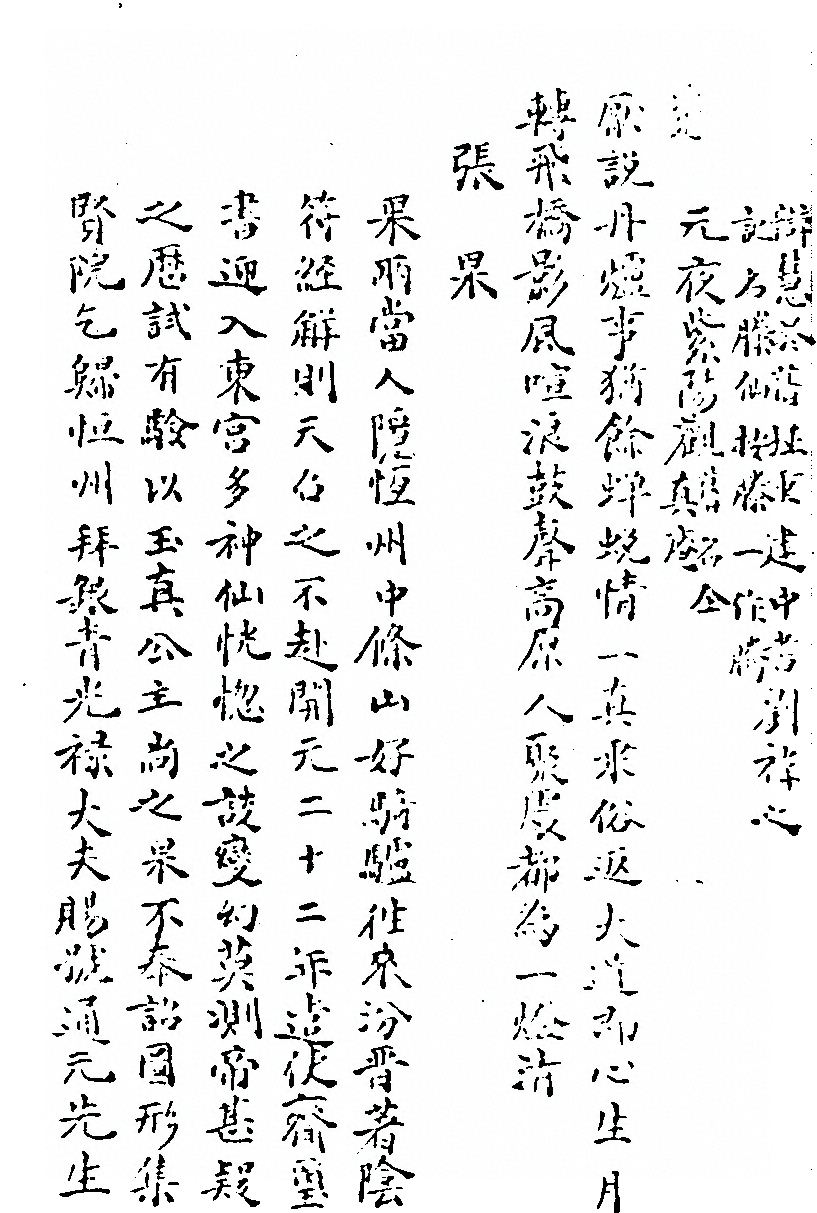 辯慧
記
元夜紫陽觀真
厭說丹爐事猶餘蟬蛻情一真非俗返大道即心生月
轉飛橋影風喧浪鼓聲高原人聚處都為一燈清
張果
果兩當人隱恆州中條山好騎驢往來汾晉著陰
符經解則天召之不赴開元二十二年遣使齎璽
書迎入東宮多神仙恍惚之談變幻莫測帝甚疑
之歷試有驗以玉真公主尚之果不奉詔圖形集
賢院乞歸恒州拜銀青光祿大夫賜號通元先生